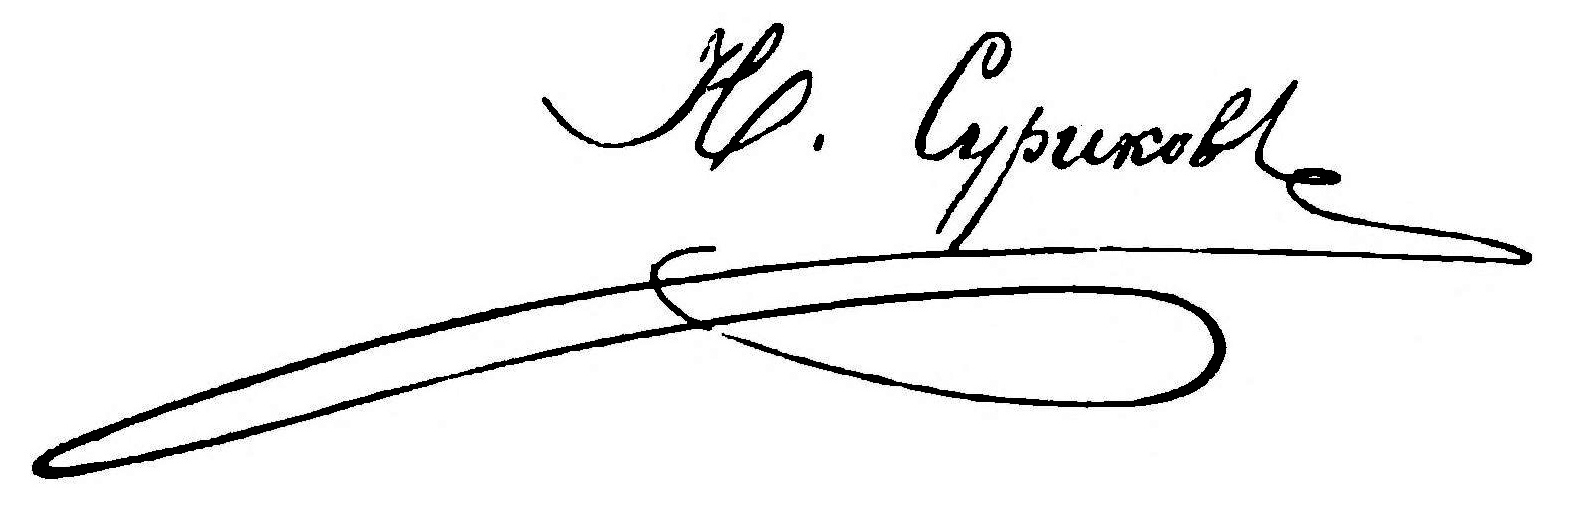 И. Суриковъ